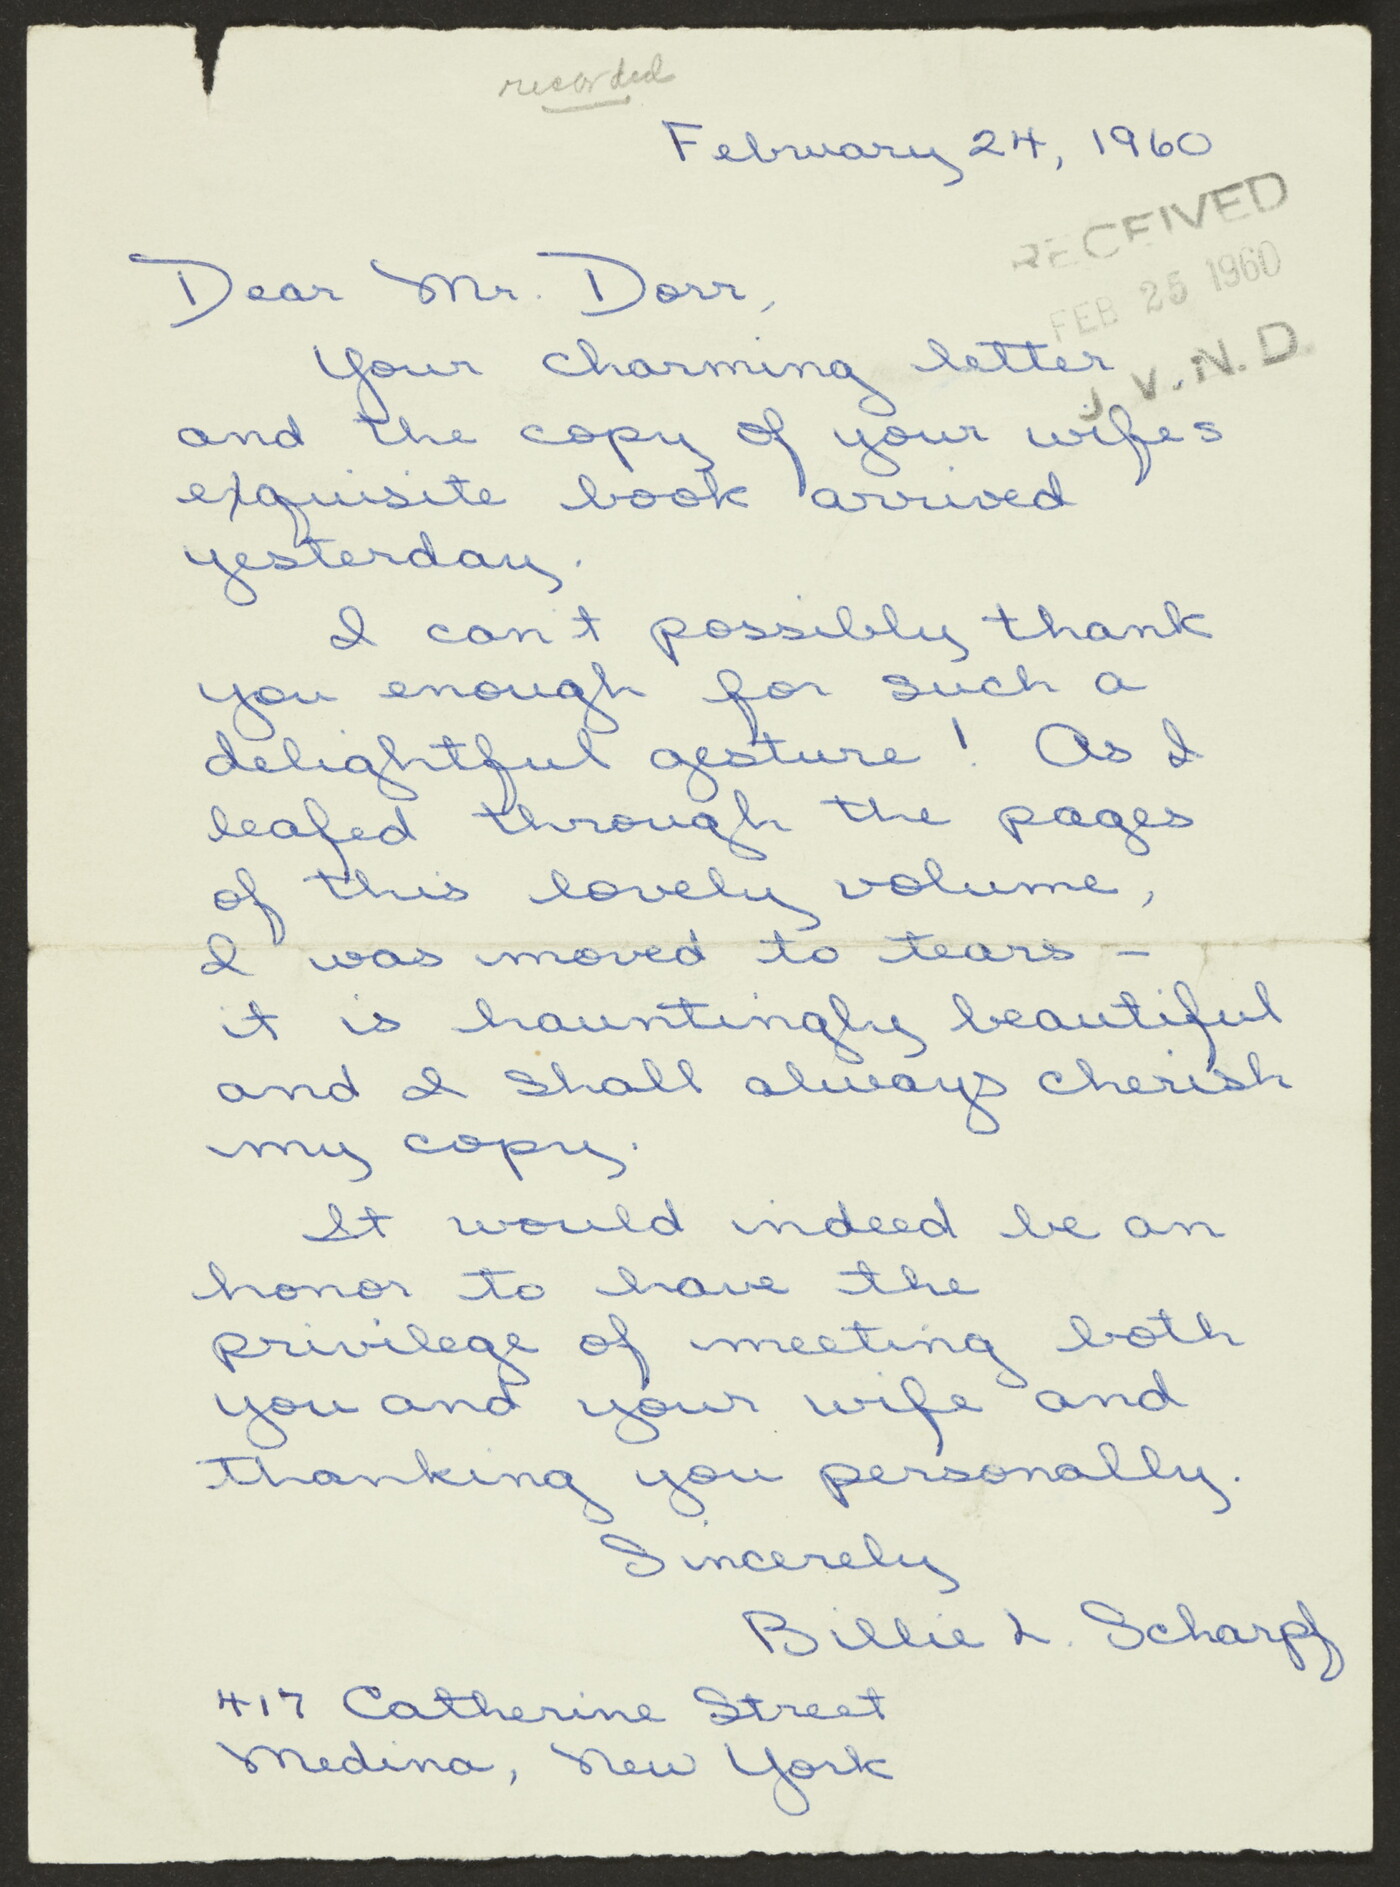 recorded
February 24, 1960
RECEIVED
FEB 25 1960
J. V. N. D.
Dear Mr. Dorr,
Your charming letter
and the copy of your wifes
exquisite book arrived
yesterday.
I can't possibly thank
you enough for such a
delightful gesture! As I
leafed through the pages
of this lovely volume,
I was moved to tears -
it is hauntingly beautiful
and I shall always cherish
my copy.
It would indeed be an
honor to have the
privilege of meeting both
you and your wife and
thanking you personally.
Sincerely
Billie L. Scharpf
417 Catherine Street
Medina, New York